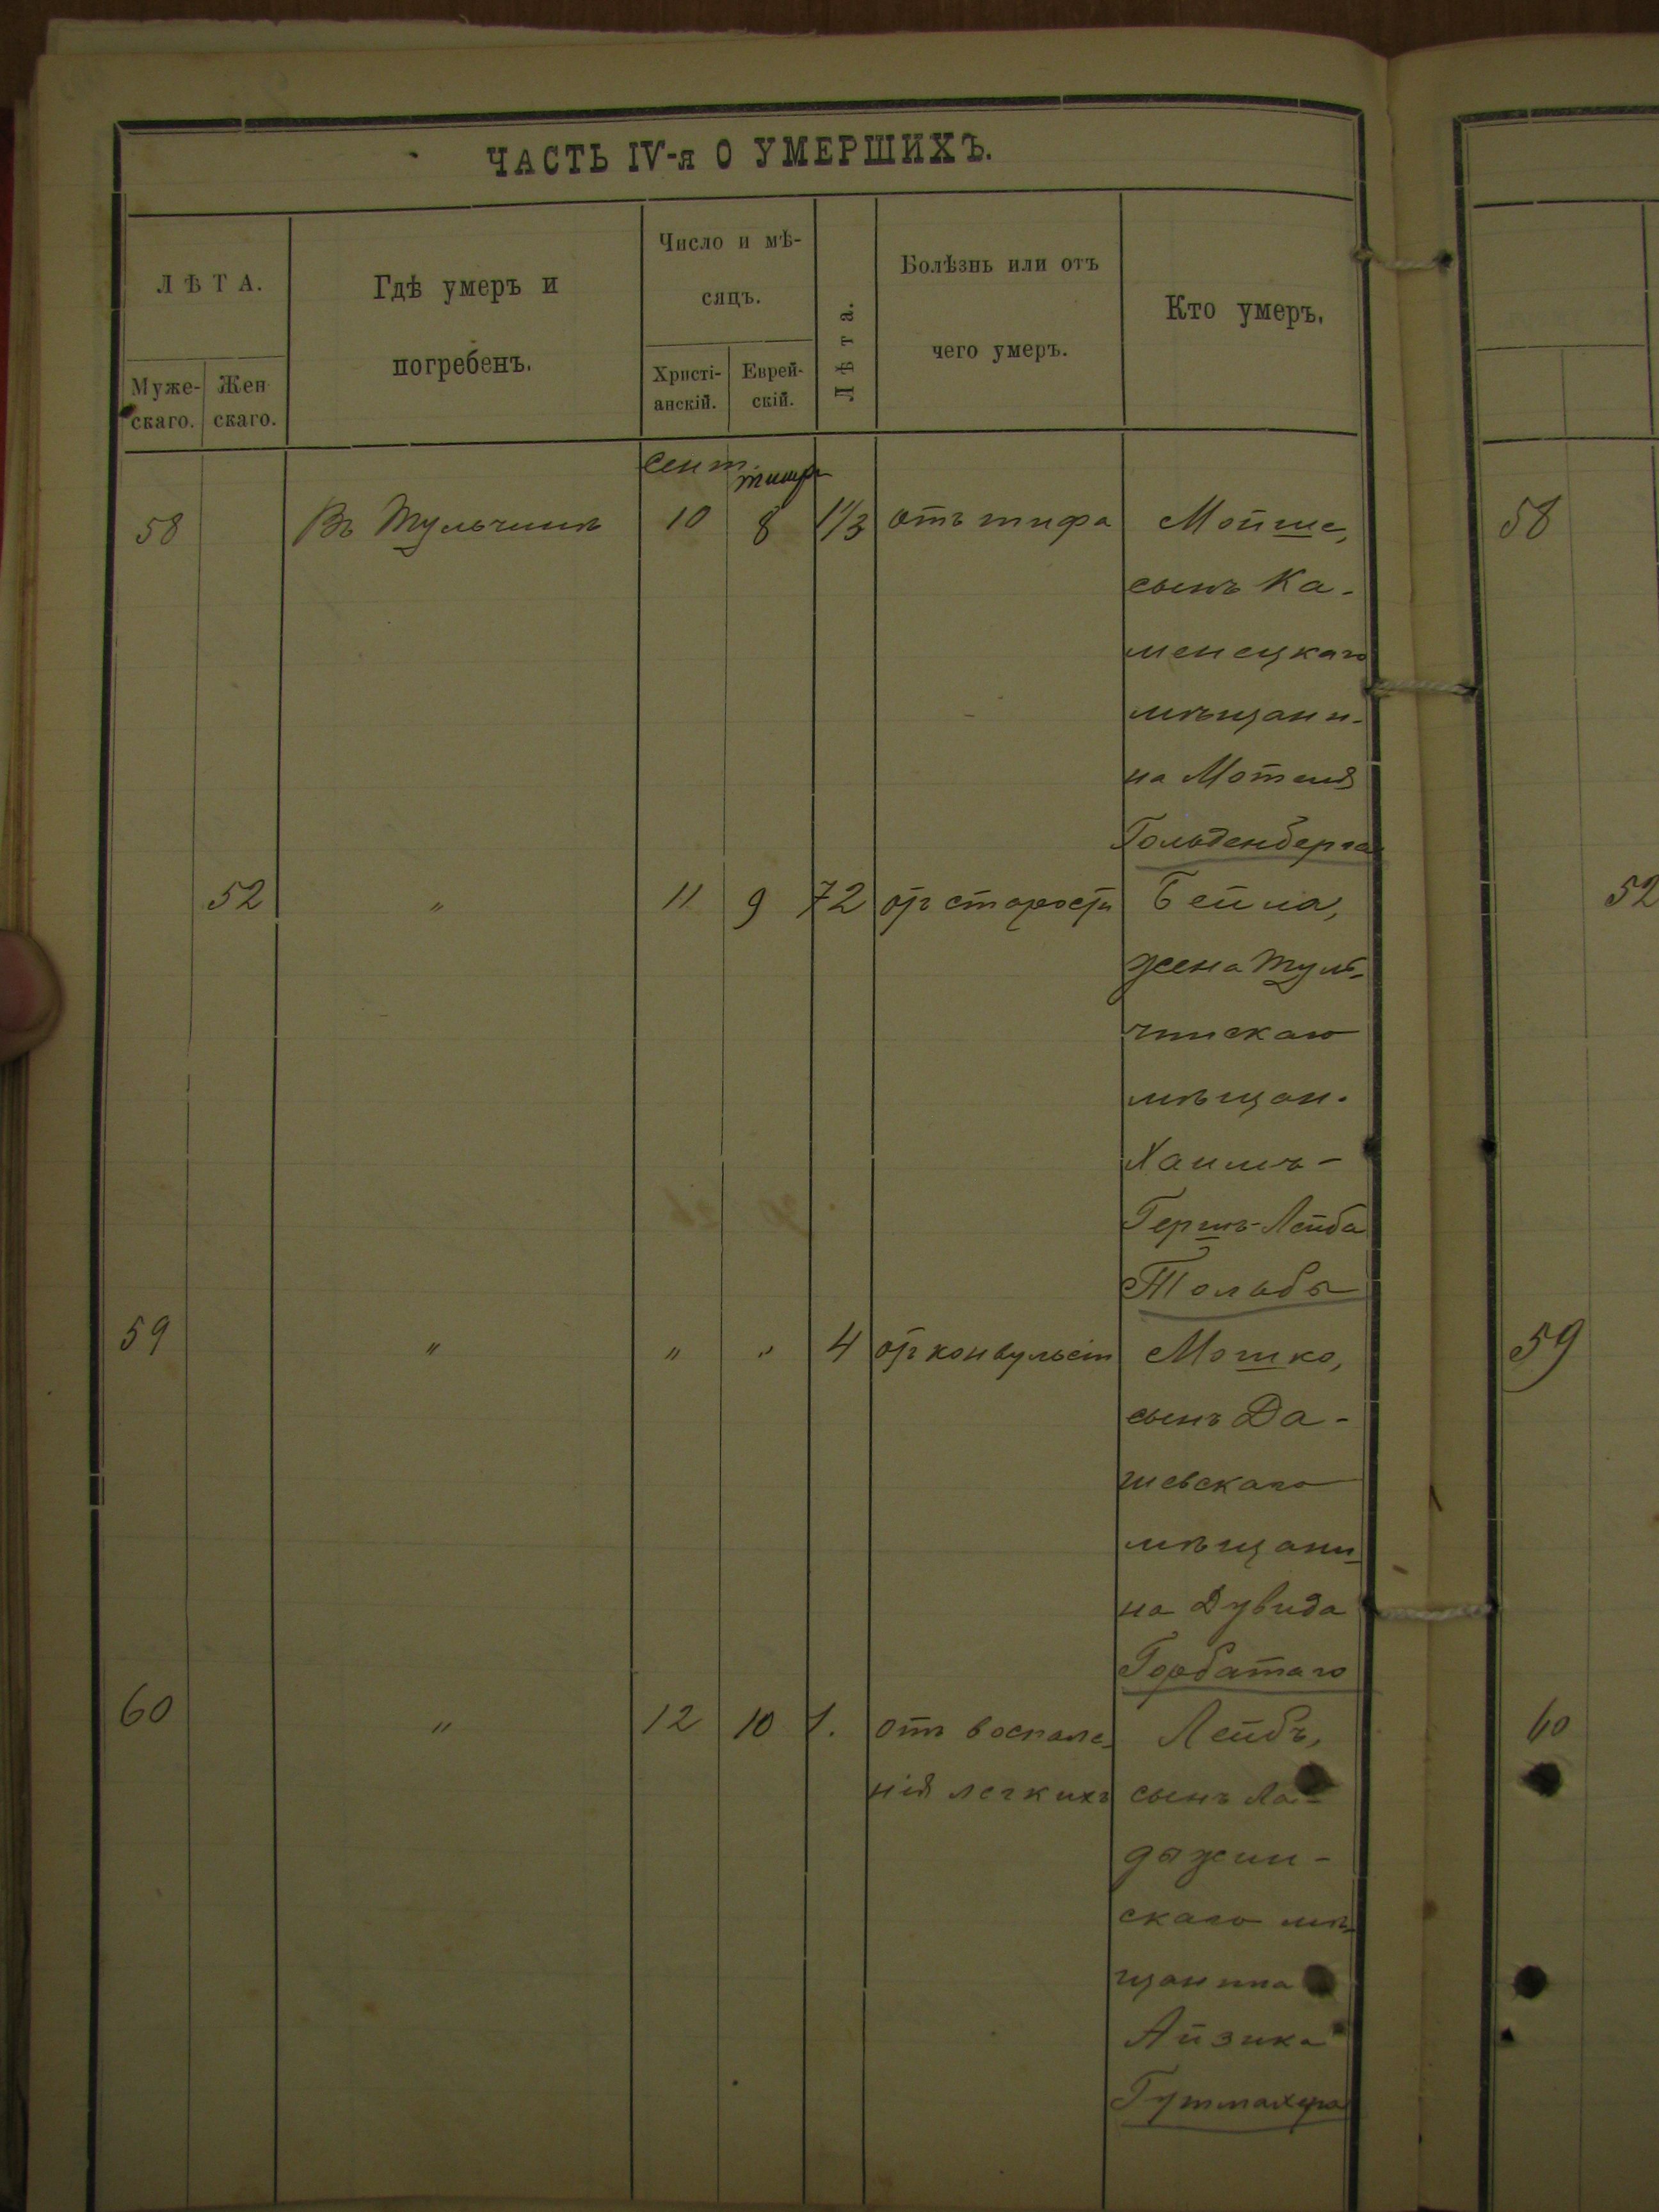 ЧАСТЬ IV-я О УМЕРШИХЪ.
ЛѢТА.
Муже-
скаго.
Жен
скаго.
Гдѣ умеръ и
погребенъ.
Число и мѣ-
сяцъ.
Христі-
анскій.
Еврей-
скій.
Лѣта.
Болѣзнь или отъ
чего умеръ.
Кто умеръ.
Сент. тишри
58 Въ Тульчинѣ 10 8 1/3 отъ тифа Мойше, 58
сынъ Ка-
менецкаго
мѣщани-
на Мотеля
Гольденберга
52 " 11 9 72 отъ старости Бейла, 52
жена Туль-
чинскаго
мѣщан.
Хаимъ-
Гершъ-Лейба
Тольбы
59 " " " 4 отъ конвульсій Мошко, 59
сынъ Да-
шевскаго
мѣщани-
на Дувида
Горбатаго
60 " 12 10 1. отъ воспале- Лейбъ, 60
нія легкихъ сынъ Ла-
дыжин-
скаго мѣ-
щанина
Айзика
Гутмахера